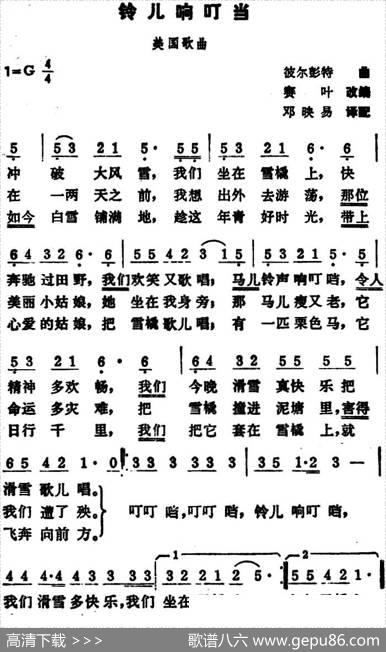 铃儿响叮当
美国歌曲
1=G 4/4
彼尔彭特 曲
赛 叶 改编
邓映易 译配
5 | 53 21 5· 55 | 53 21 5· 5 |
冲 破 大风 雪，我们 坐在 雪橇 上，快
在 一两 天之 前，我想 出外 去游 荡，那位
如今 白雪 铺满 地，趁这 年青 好时 光，带上
64 32 6· 6 | 55 42 3 15 | 53 21 5· 5 |
奔驰过田野，我们欢笑又歌唱；马儿铃声响叮当，令人
美丽小姑娘，她 坐在我身旁；那 马儿瘦又老，它
心爱的姑娘，把 雪橇歌儿唱；有 一匹栗色马，它
53 21 6· 6 | 64 32 55 55 |
精神 多欢 畅，我们 今晚 滑雪 真快乐 把
命运 多灾 难，把 雪橇 撞进 泥塘 里，害得
日行 千 里，我们 把它 套在 雪橇 上，就
65 42 1· 0 | 33 3 33 3 | 35 1·2 3 — |
滑雪 歌儿 唱。
我们 遭了 殃。 叮叮 当，叮叮 当，铃儿 响叮 当，
飞奔 向前 方。
1 2
44 4·4 43 3 33
我们 滑雪 多快乐，我们 坐在
高清下载 >>> 歌谱八六 www.gepu86.com